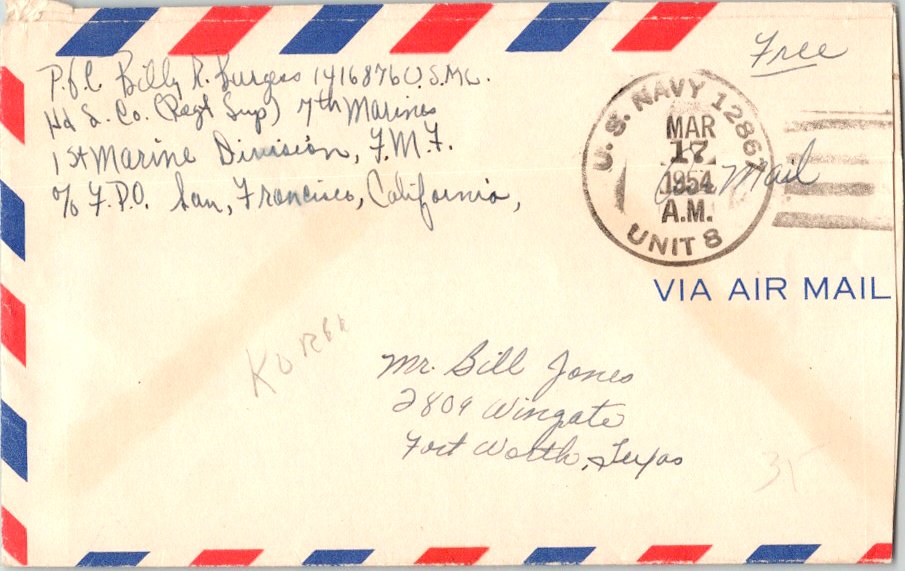 Free
P.f.C. Billy R. Burgess 1416876 U.S.M.C.
Hd S. Co. (Regt Sup) 7th Marines
1st Marine Division, F.M.F.
c/o F.P.O. San, Francisco, California,
U. S. NAVY 12867
MAR
17
1954
A.M.
UNIT 8
Mail
VIA AIR MAIL
Korea
Mr. Bill Jones
2809 Wingate
Fort Worth, Texas
35